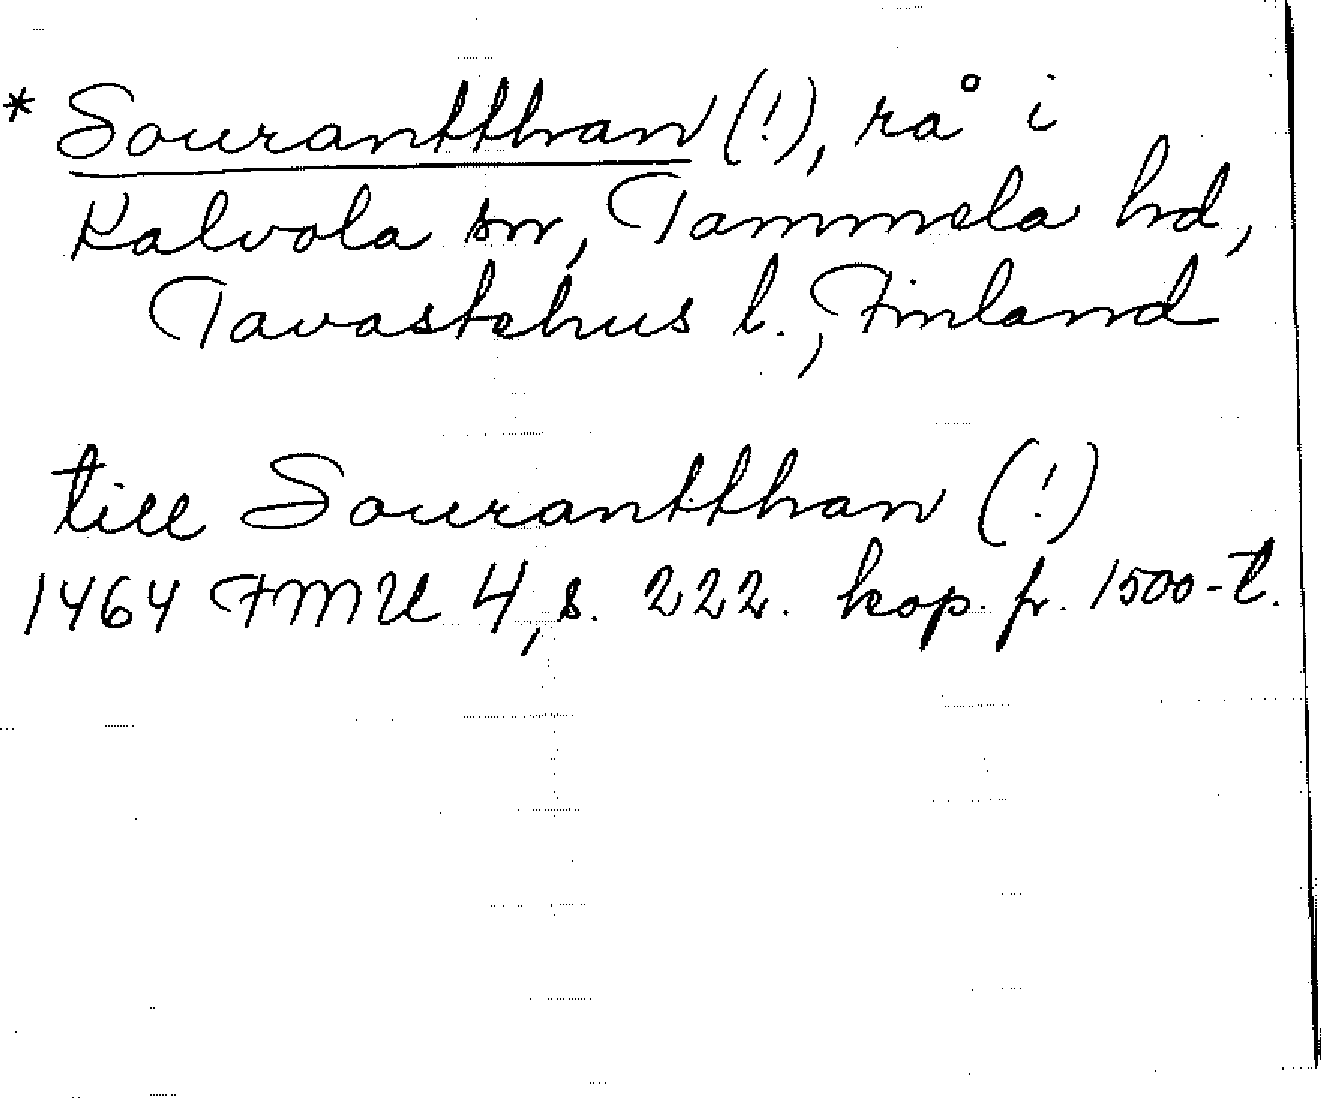 * Sourantthan (!), rå i
Kalvola sn, Tammela hd,
Tavastehus l., Finland
till Sourantthan (!)
1464 FMU 4, s. 222. kop. fr. 1500-t.